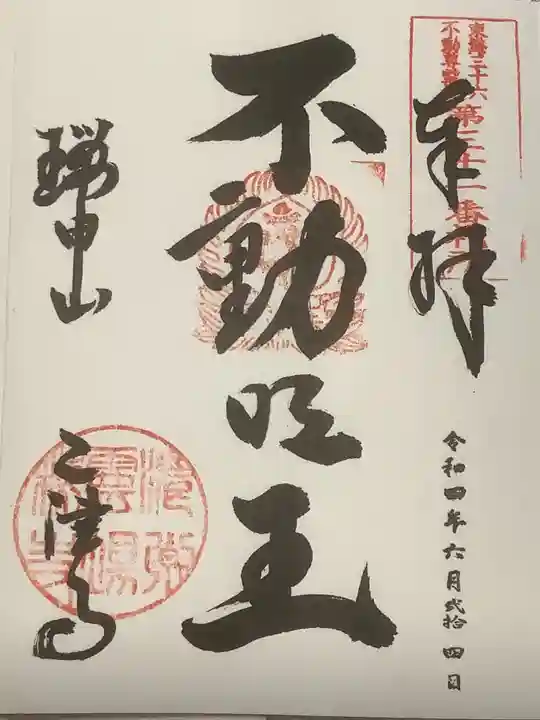 東海三十六
不動尊霊場
奉拝
令和四年六月弐拾四日
不動明王
瑞甲山
乙津寺